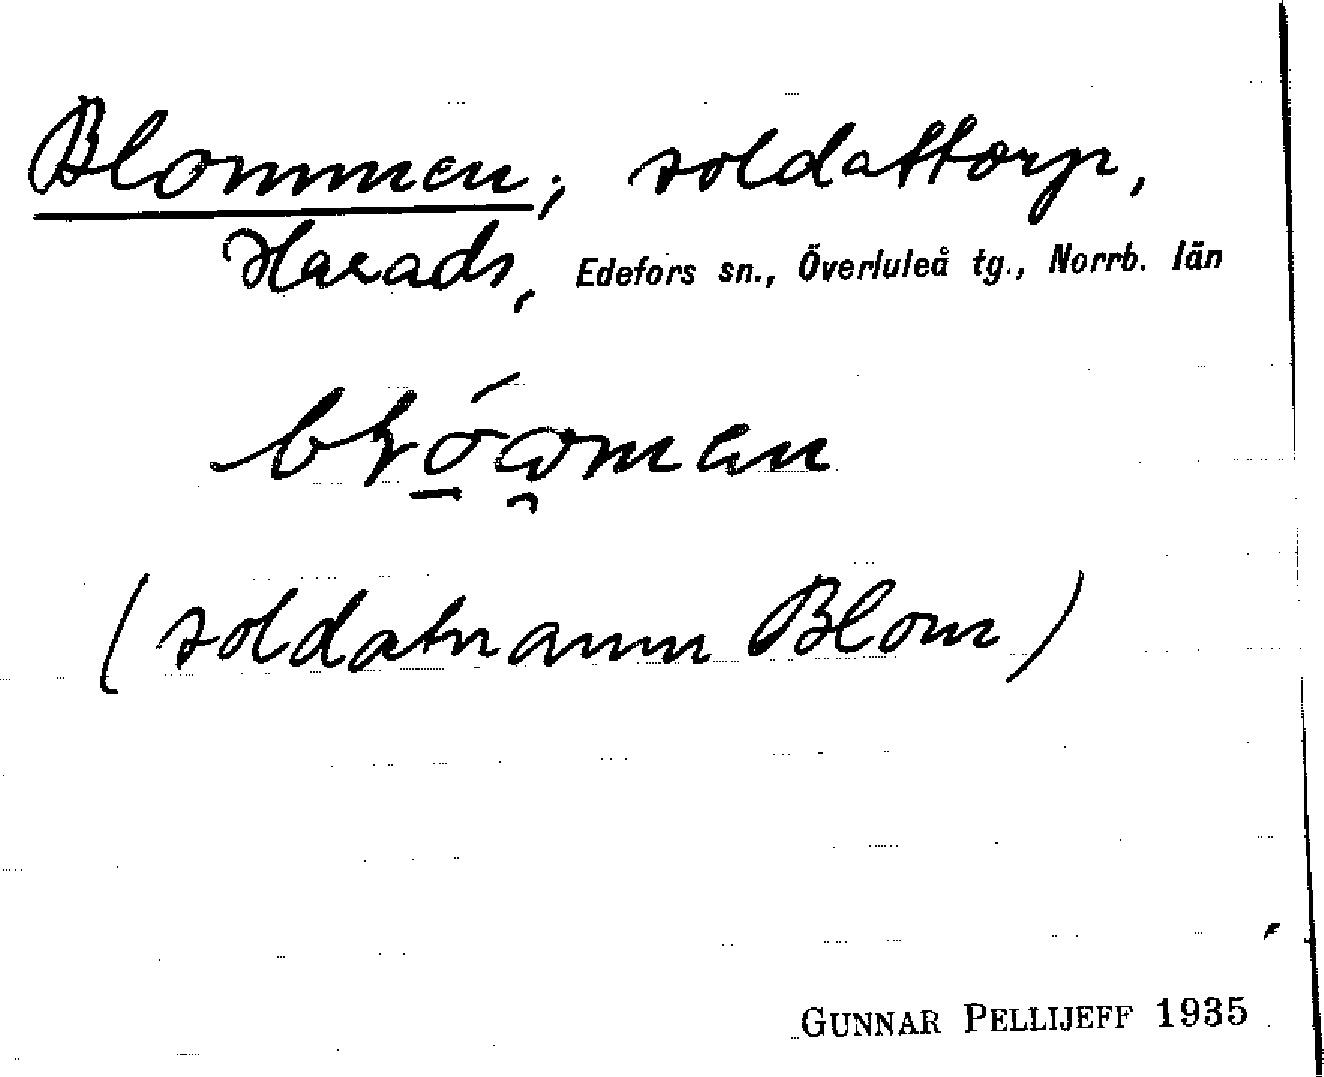 Blommen; soldattorp,
Harads, Edefors sn., Överluleå tg., Norrb. län
(soldatnamn Blom)
GUNNAR PELLIJEFF 1935